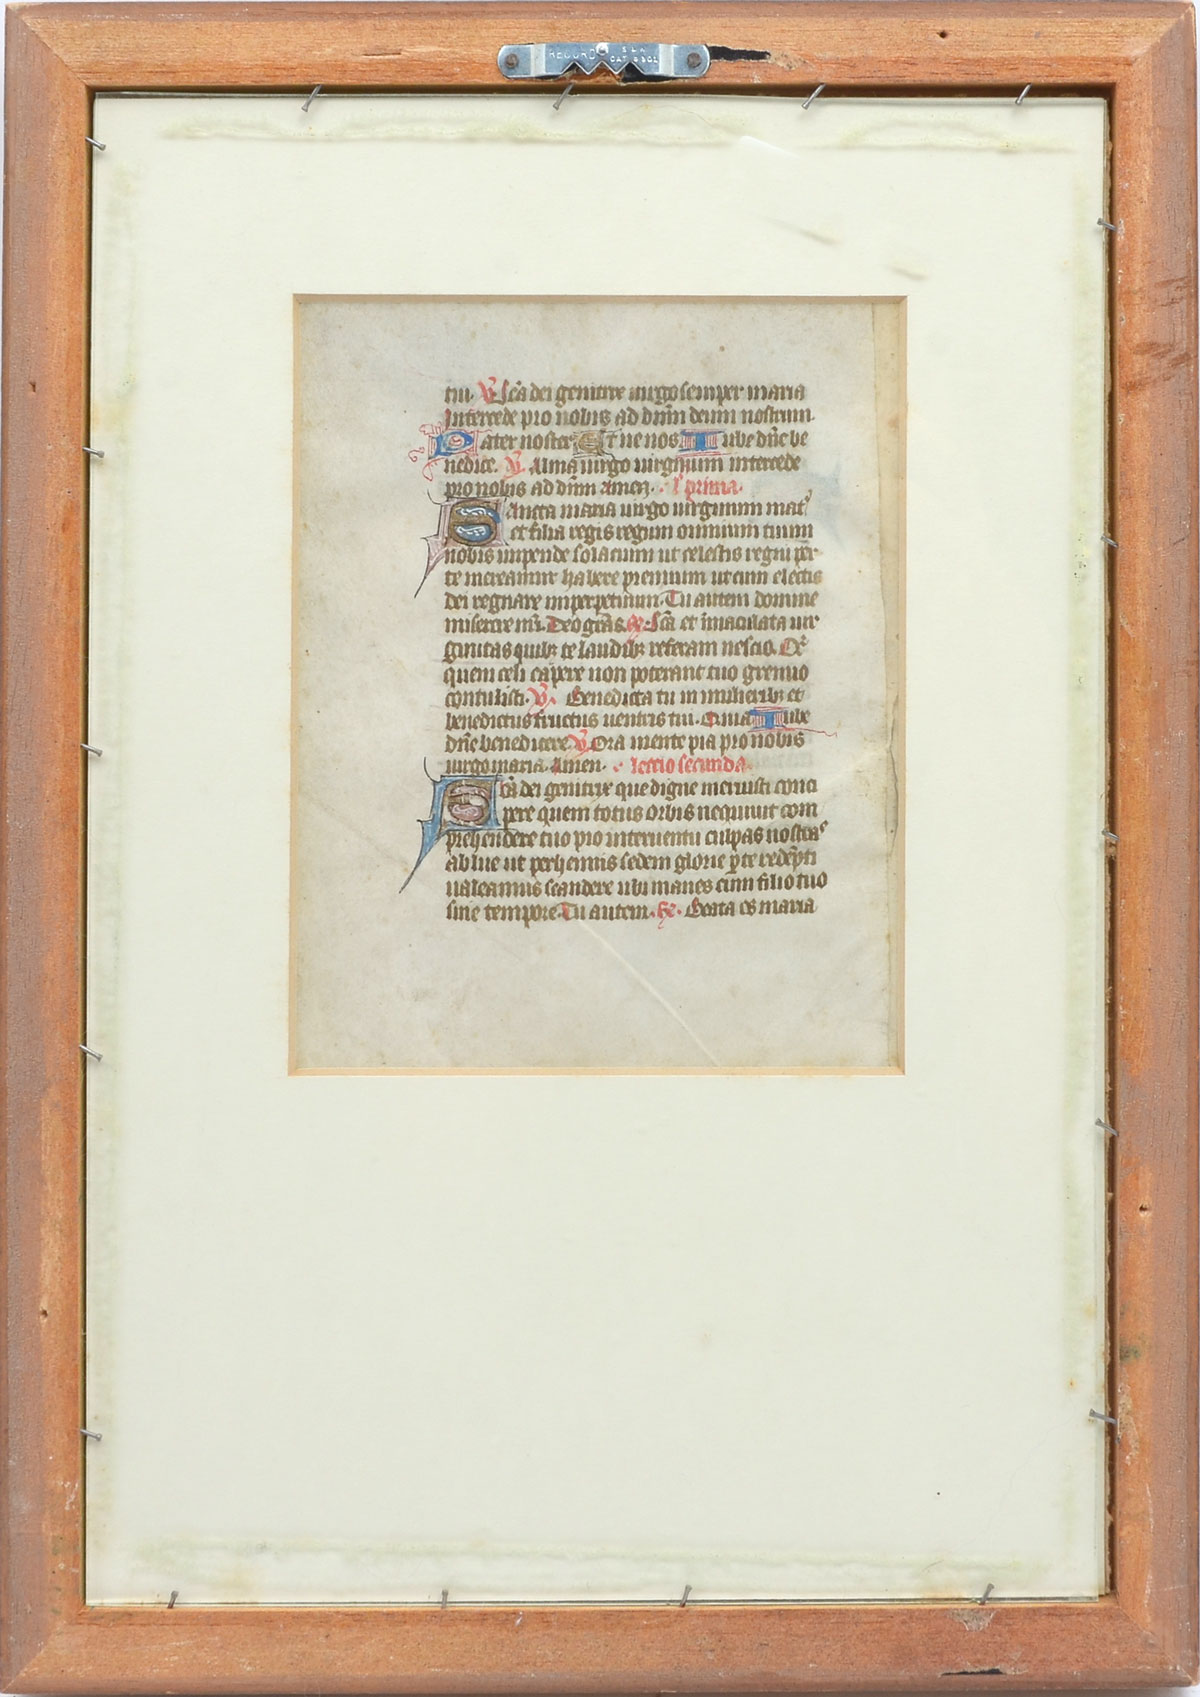 RECORD S L K
CAT 6301
tui. V Sc̄a dei genitrix uirgo semper maria
Intercede pro nobis ad dn̄m deum nostrum.
Pater noster Et ne nos Iube dn̄e be
nedice. V Alma uirgo uirginum intercede
pro nobis ad dn̄m Amen. l' prima.
Sancta maria uirgo uirginum mat'
et filia regis regum omnium tuum
nobis impende solacium ut celestis regni per
te mereamur habere premium ut cum electis
dei regnare imperpetuum. Tu autem domine
miserere nr̄i. Deo gr̄as. R̄. Sc̄a et imaculata uir
ginitas quibꝫ te laudibꝫ referam nescio. Qr̄
quem celi capere non poterant tuo gremio
contulisti. V. Benedicta tu in mulieribꝫ et
benedictus fructus uentris tui. Quia Iube
dn̄e benedicere V Ora mente pia pro nobis
uirgo maria. Amen. lectio secunda
Sc̄a dei genitrix que digne meruisti conci
pere quem totus orbis nequiuit com
prehendere tuo pio interuentu culpas nostras
ablue ut perhennis sedem glorie ꝑ te redēpti
ualeamus scandere ubi manes cum filio tuo
sine tempore. Tu autem. R̄. Beata es maria